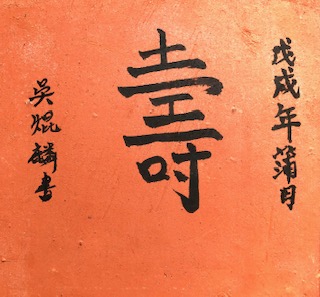 戊戌年蒲月
壽
吳焜麟書